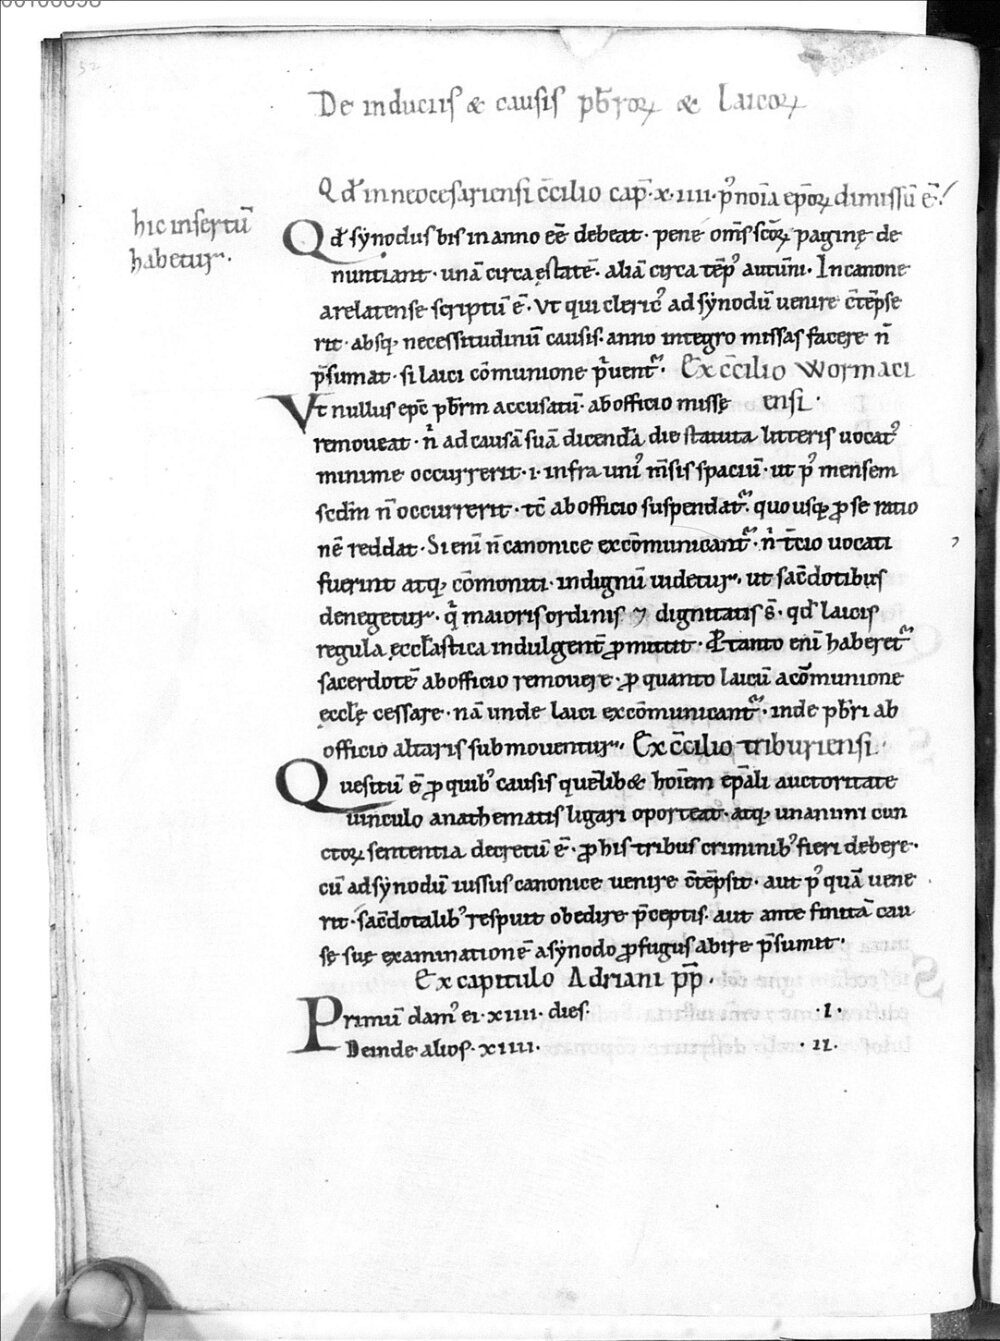 52
De induciis & causis pb̄roꝝ & laicoꝝ
Qd̄ in neocesariensi c̄cilio cap̄·x·iiii·p̄ noīa ep̄oꝝ dimissū ē
hic insertū
habetur·
Qd̄ synodus bis in anno eē debeat· pene om̄s sc̄oꝝ paginę de
nuntiant· unā circa ęstatē· aliā circa tēpꝰ autūni· In canone
arelatense scriptū ē· Vt qui clericꝰ ad synodū uenire c̄tēpse
rit· absq; necessitudinū causis· anno integro missas facere n̄
p̄sumat· si laici cōmunione p̄uent᷑· Ex c̄cilio Wormaci
ensi·
Vt nullus ep̄c pb̄rm accusatū· ab officio missę
remoueat· n̄ ad causā suā dicendā die statuta litteris uocatꝰ
minime occurrerit·i·infra uniꝰ m̄sis spaciū· ut pꝰ mensem
sc̄dm n̄ occurrerit· tc̄ ab officio suspendat᷑· quousq; ꝓ se ratio
nē reddat· Si enī n̄ canonice excōmunicant᷑· n̄ t̄cio uocati
fuerint atq; cōmoniti· indignū uidetur· ut sac̄dotibus
denegetur· q̄ maioris ordinis ⁊ dignitatis s̄· qd̄ laicis
regula ęcclāstica indulgent̄ ꝓmittit· Ꝑ tanto enī haberet᷑
sacerdotē ab officio remouere· ꝓ quanto laicū a cōmunione
ęcclę cessare· nā unde laici excōmunicant᷑· inde pb̄ri ab
officio altaris submouentur· Ex c̄cilio triburiensi·
Quesitū ē ꝓ quibꝰ causis quēlib& hoīem ep̄ali auctoritate
uinculo anathematis ligari oporteat· atq; unanimi cun
ctoꝝ sententia decretū ē· ꝓ his tribus criminibꝰ fieri debere·
cū ad synodū iussus canonice uenire c̄tēpsit· aut pꝰ quā uene
rit· sac̄dotalibꝰ respuit obedire p̄ceptis· aut ante finitā cau
sę suę examinationē a synodo ꝓfugus abire p̄sumit·
Ex capitulo Adriani pp̄·
Primū damꝰ ei·xiiii· dies· ·i·
Deinde alios·xiiii· ·ii·